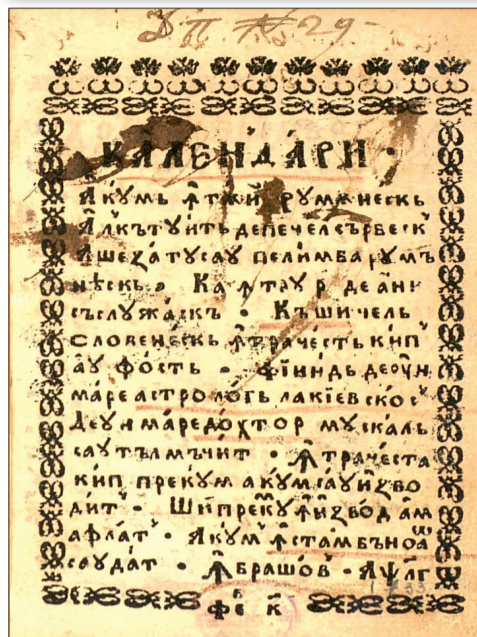 КАЛЕНДАРИ ·
Акумь ꙟтѫй румѫнескь
Алкътуить депечел сърбеск
Ашеꙁатусау пелимба румъ
нѣскь · Ка ꙟтр҆ ур де ани
съслужаскъ · Къшичель
словенескь ꙟтрачесть кип
ау фость · фїиндь деоун
маре астрологь лакїев скос
Де ун маре дохтор мускаль
сау тълмъчит · Ꙟтрачеста
кип прекум акум сау иꙁво
дит · Ши прекум ꙟиꙁвод ам
афлат · Акум ꙟстамбъ ноаѡ
саудат · Ꙟбрашов · АѰЛГ
фе к